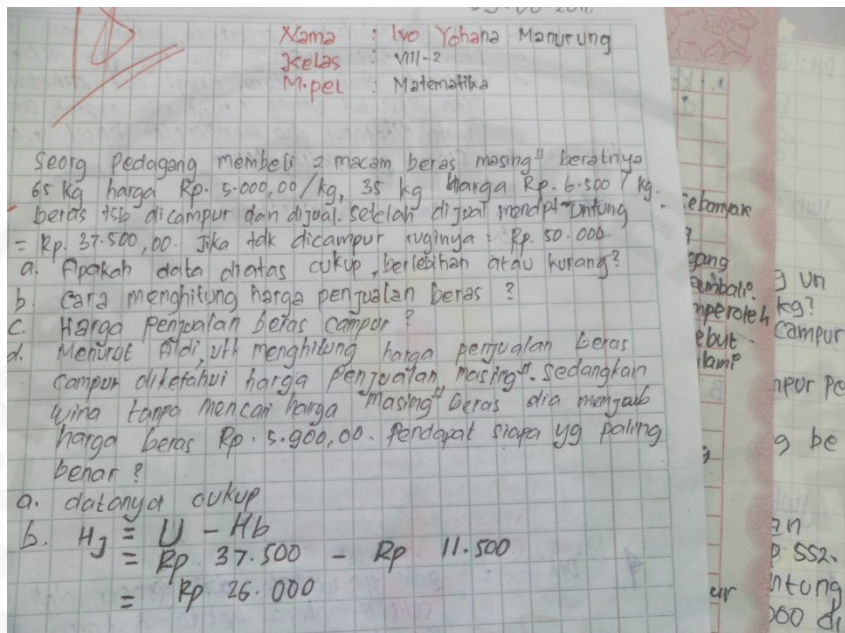 Nama : Ivo Yohana Manurung
Kelas : VIII-2
M.pel : Matematika
Seorg pedagang membeli 2 macam beras masing" beratnya
65 kg harga Rp. 5.000,00/kg, 35 kg Harga Rp. 6.500 / kg.
beras tsb dicampur dan dijual. setelah dijual mendpt untung
= Rp. 37.500,00. Jika tdk dicampur ruginya = Rp. 50.000
a. Apakah data diatas cukup, berlebihan atau kurang?
b. Cara menghitung harga penjualan beras ?
c. Harga Penjualan beras campur ?
d. Menurut Aldi, utk menghitung harga penjualan beras
campur diketahui harga Penjualan masing". sedangkan
wina tanpa mencari harga masing" beras dia menjawb
harga beras Rp. 5.900,00. Pendapat siapa yg paling
benar ?
a. datanya cukup
b. HJ = U - Hb
= Rp 37.500 - Rp 11.500
= Rp 26.000
ebanyak
gang
embali
mperoleh
ebut
lami
ur
g un
kg?
campur
mpur pe
g be
an
p. 552.
ntung
000 di